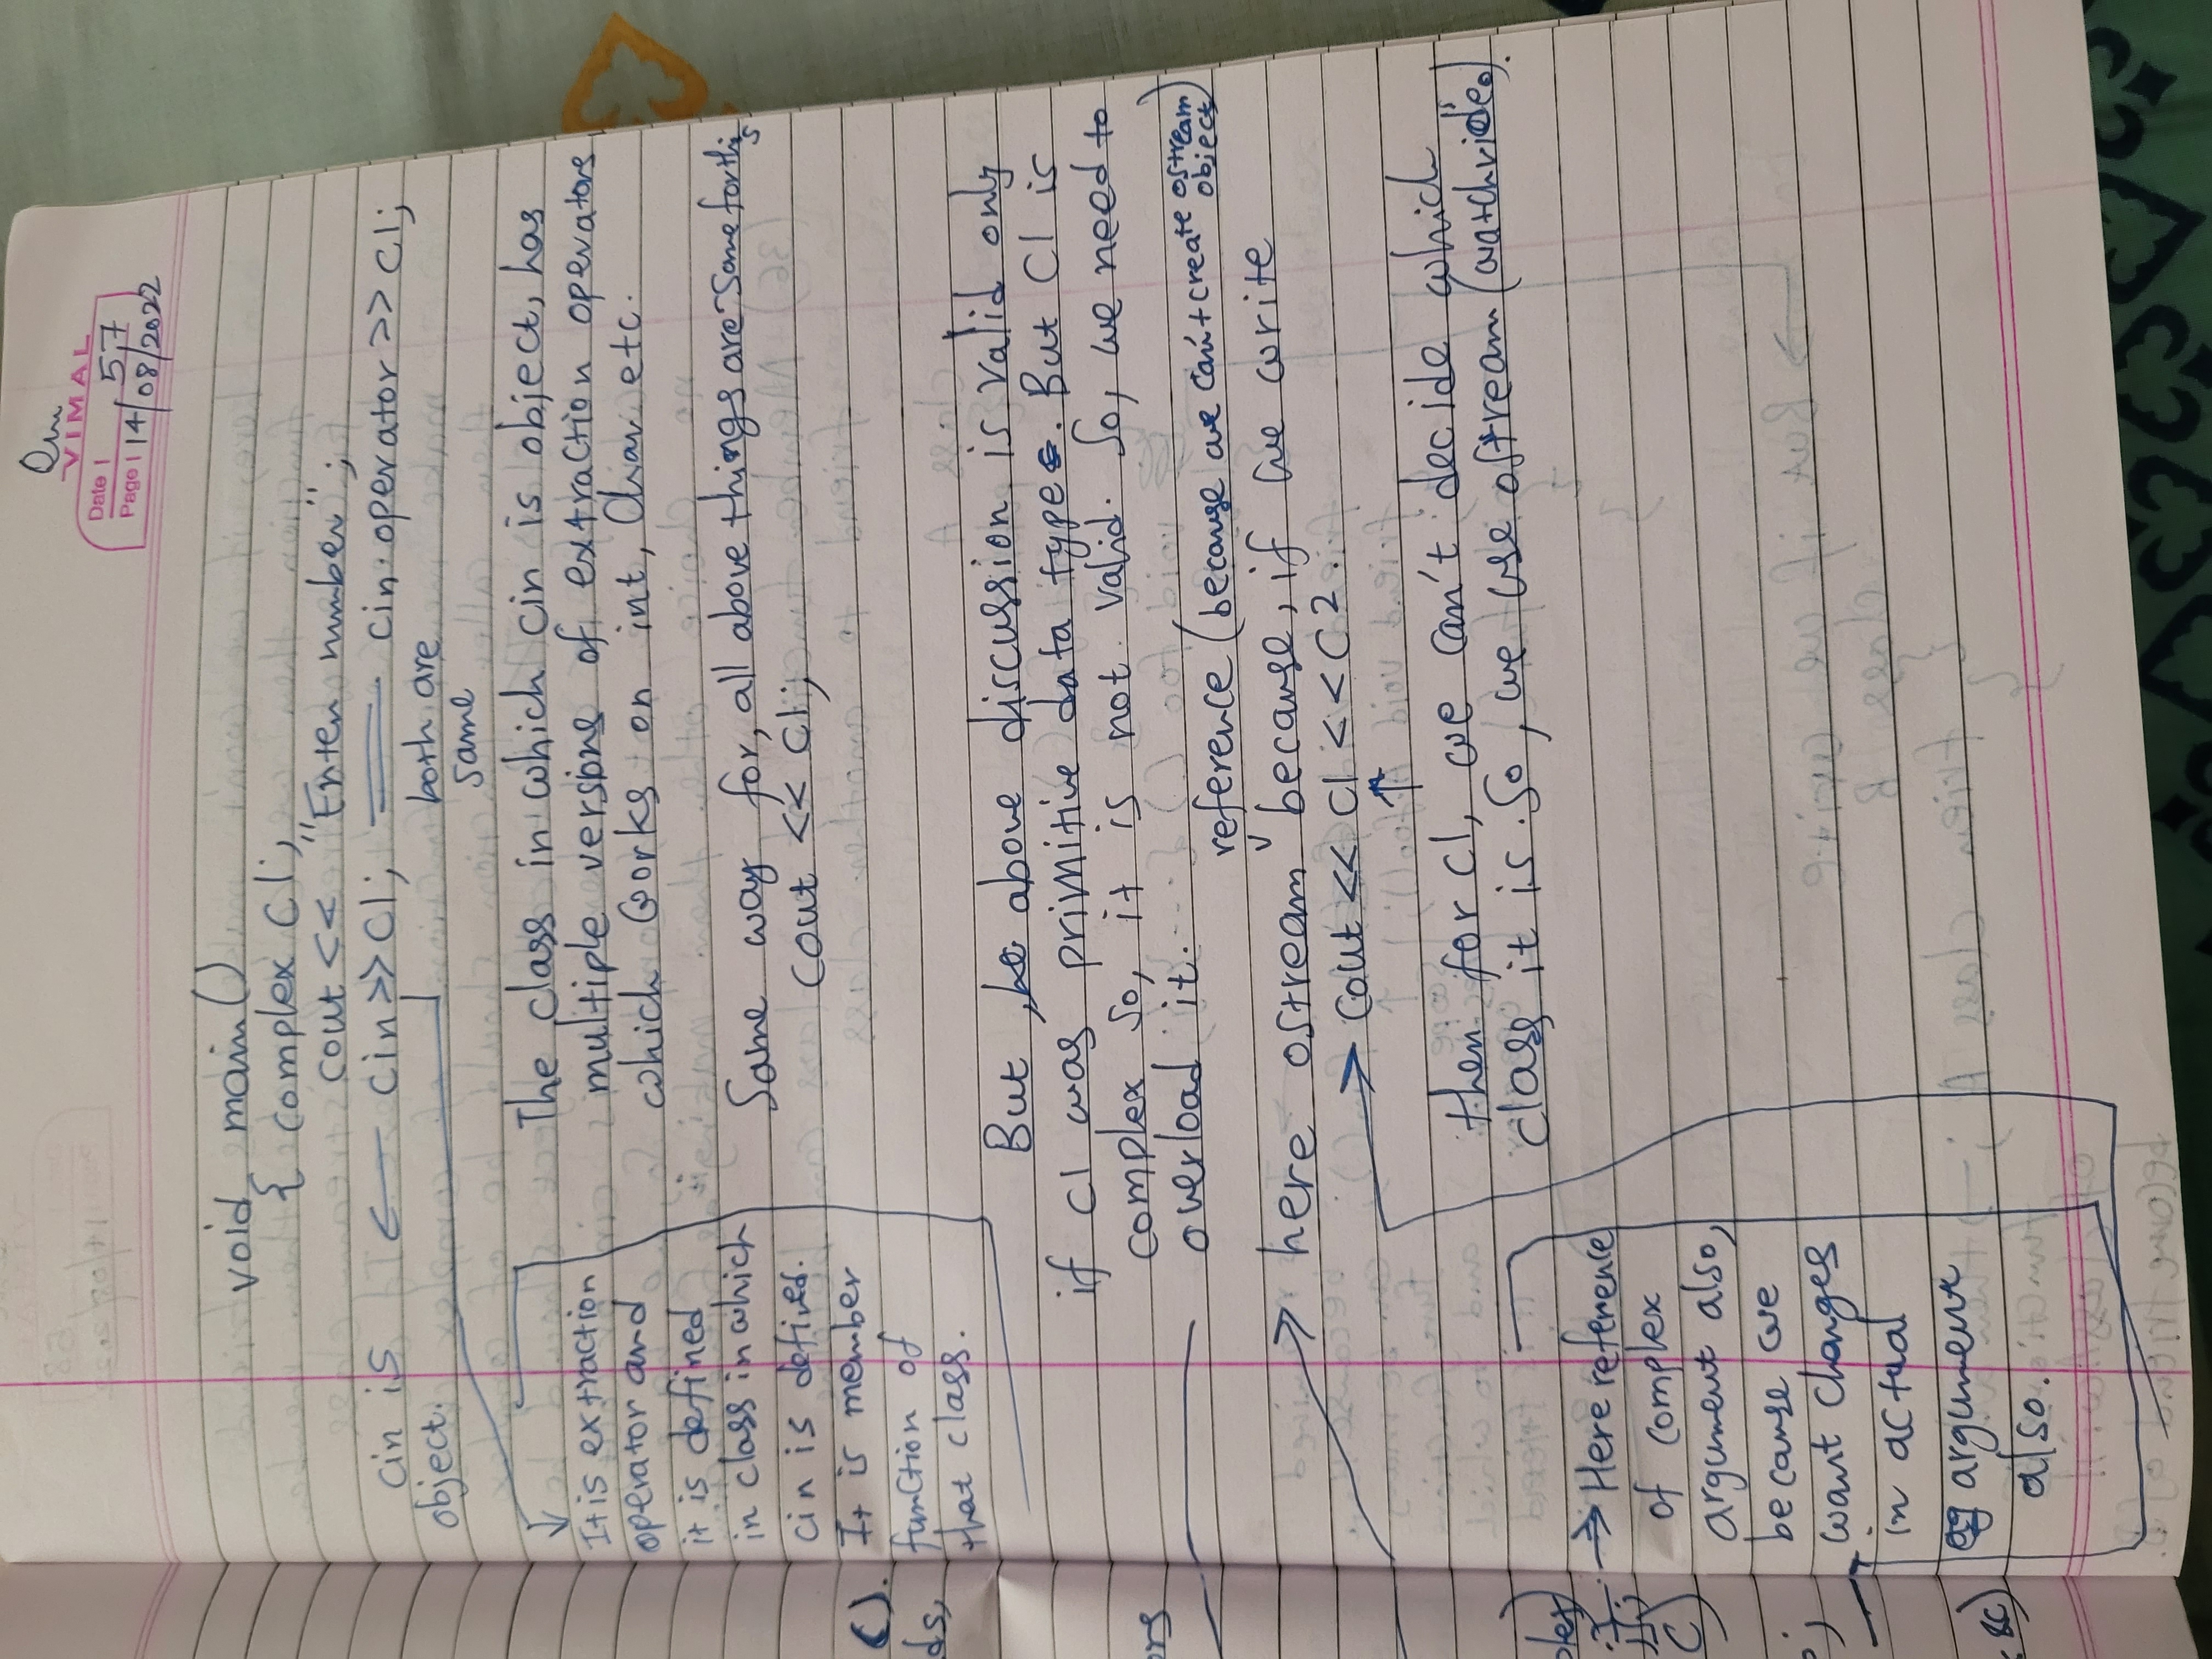 Om
VIMAL
Date | 57
Page | 14/08/2022
void main()
{ complex C1;
cout << "Enter number";
cin is ← cin>>C1; = cin.operator>>C1;
object.
both are
same
It is extraction
operator and
it is defined
in class in which
cin is defined.
It is member
function of
that class.
The class in which cin is object, has
multiple versions of extraction operators
which works on int, Char etc.
Same way for, all above things are same for this
Cout << C1;
But, above discussion is valid only
if C1 was primitive data type. But C1 is
complex so, it is not valid. So, we need to
overload it.
reference (because we can't create ostream
object)
→ here ostream ˅ because, if we write
→ Cout << C1 << C2.
↑
then for C1, we can't decide which
class it is. So, we use ostream (watch video).
→ Here reference
of complex
argument also,
because we
want changes
in actual
argument
also.
().
ds,
ors
plex)
C)